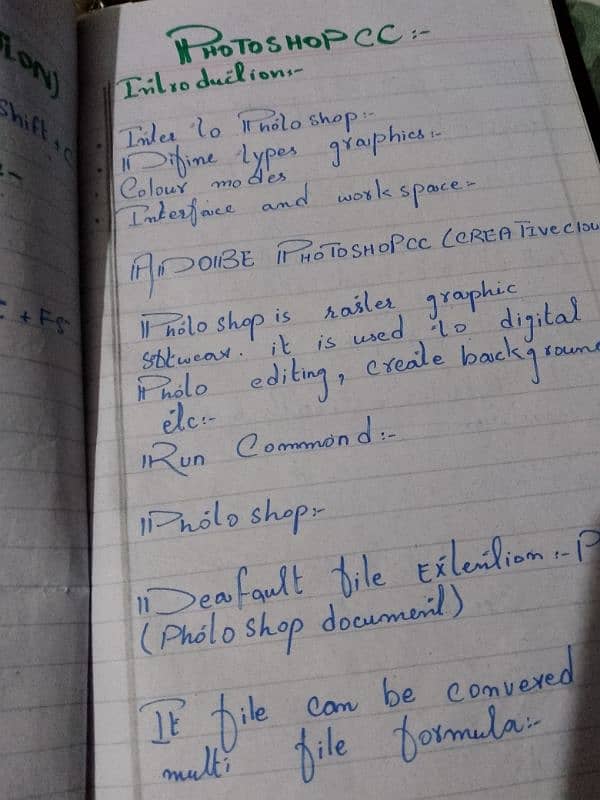 LON)
Shift + C
+ F5
PHOTOSHOP CC :-
Introduction:-
Inter to Photoshop:-
Difine types graphics:-
Colour modes
Interface and workspace:-
ADOBE PHOTOSHOP CC (CREATIVE CLOU
Photoshop is raster graphic
it is used to digital
Photo editing, create background
etc:-
Run Commond:-
Photoshop:-
Deafault file Extention :- P
(Photoshop document)
It file can be convered
multi file formula:-